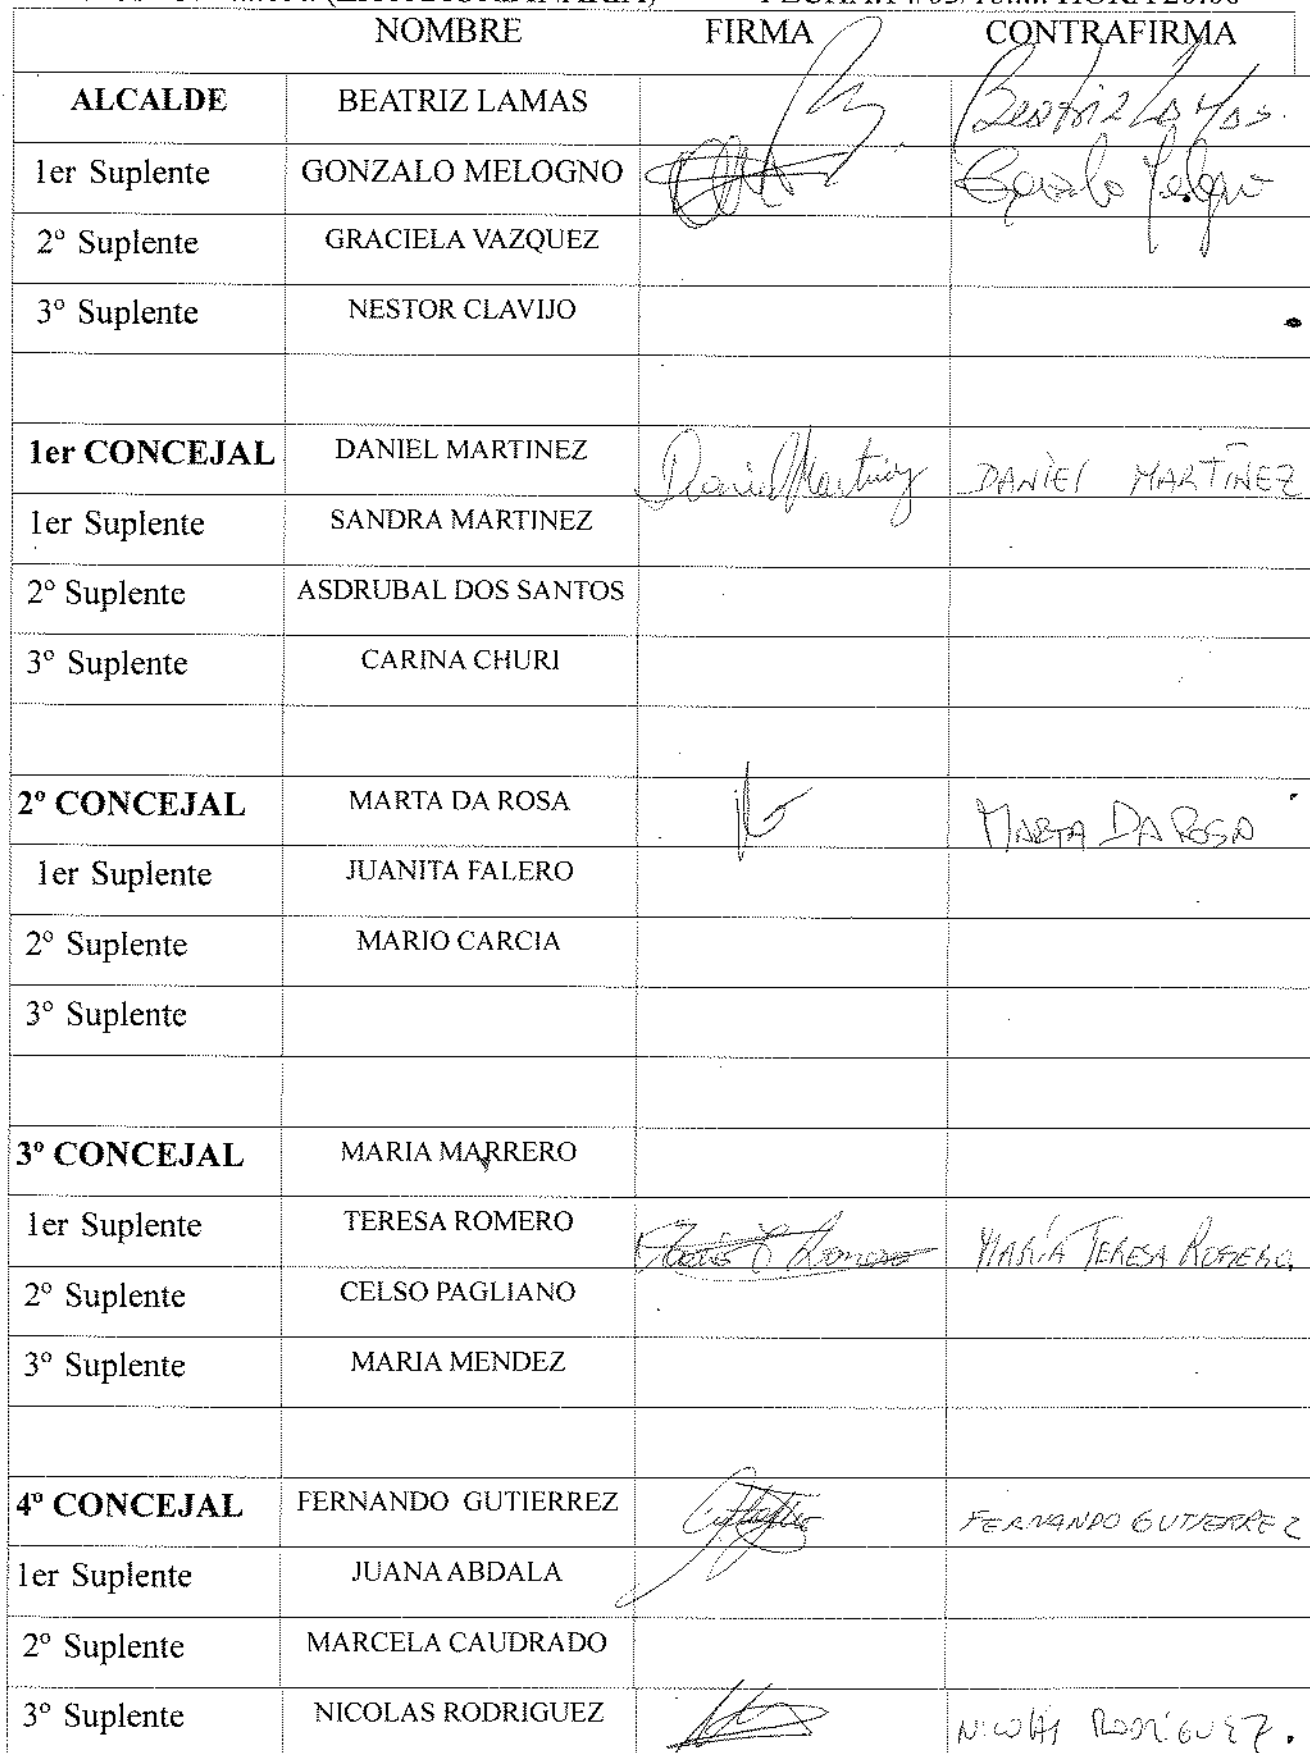 NOMBRE FIRMA CONTRAFIRMA
ALCALDE BEATRIZ LAMAS Beatriz Lamas.
1er Suplente GONZALO MELOGNO Gonzalo Melogno
2º Suplente GRACIELA VAZQUEZ
3º Suplente NESTOR CLAVIJO
1er CONCEJAL DANIEL MARTINEZ Daniel Martinez DANIEL MARTINEZ
1er Suplente SANDRA MARTINEZ
2º Suplente ASDRUBAL DOS SANTOS
3º Suplente CARINA CHURI
2º CONCEJAL MARTA DA ROSA MARTA DA ROSA
1er Suplente JUANITA FALERO
2º Suplente MARIO CARCIA
3º Suplente
3º CONCEJAL MARIA MARRERO
1er Suplente TERESA ROMERO MARÍA TERESA ROMERO.
2º Suplente CELSO PAGLIANO
3º Suplente MARIA MENDEZ
4º CONCEJAL FERNANDO GUTIERREZ FERNANDO GUTIERREZ
1er Suplente JUANA ABDALA
2º Suplente MARCELA CAUDRADO
3º Suplente NICOLAS RODRIGUEZ NICOLÁS RODRÍGUEZ.